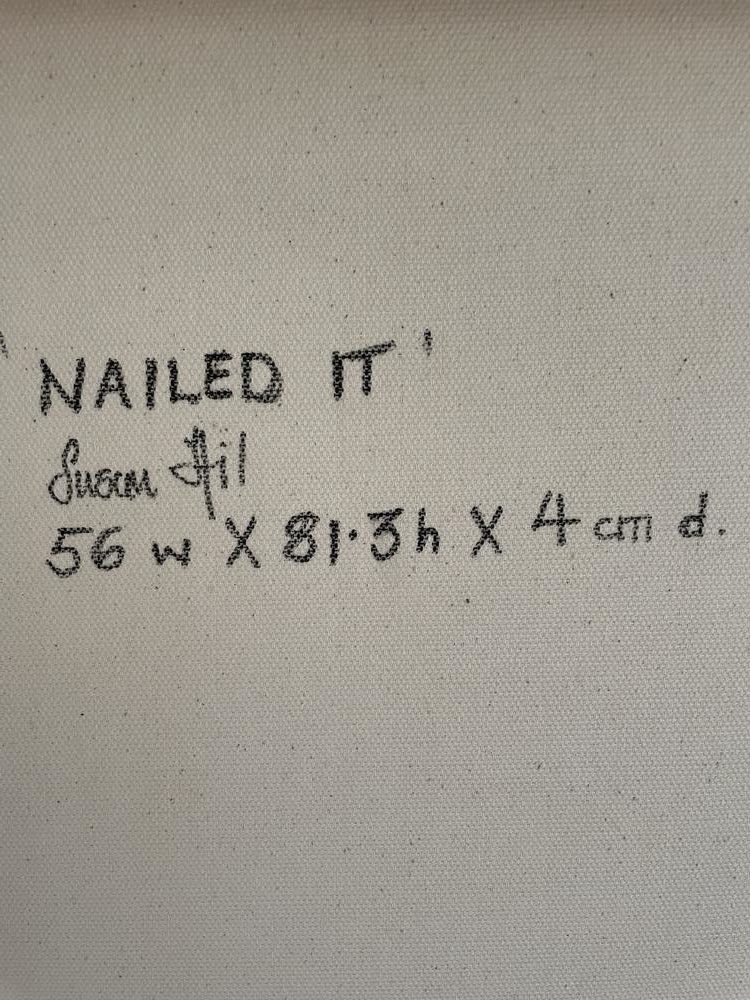 'NAILED IT'
Susan Hil
56 w X 81.3 h X 4 cm d.